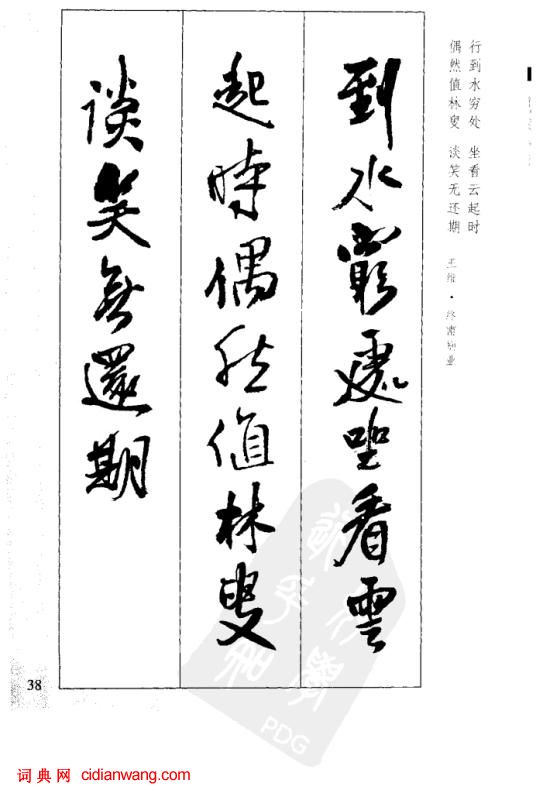 行到水穷处 坐看云起时
偶然值林叟 谈笑无还期
王维·终南别业
到水窮處坐看雲
起時偶然值林叟
談笑無還期
38
PDG
词典网 cidianwang.com